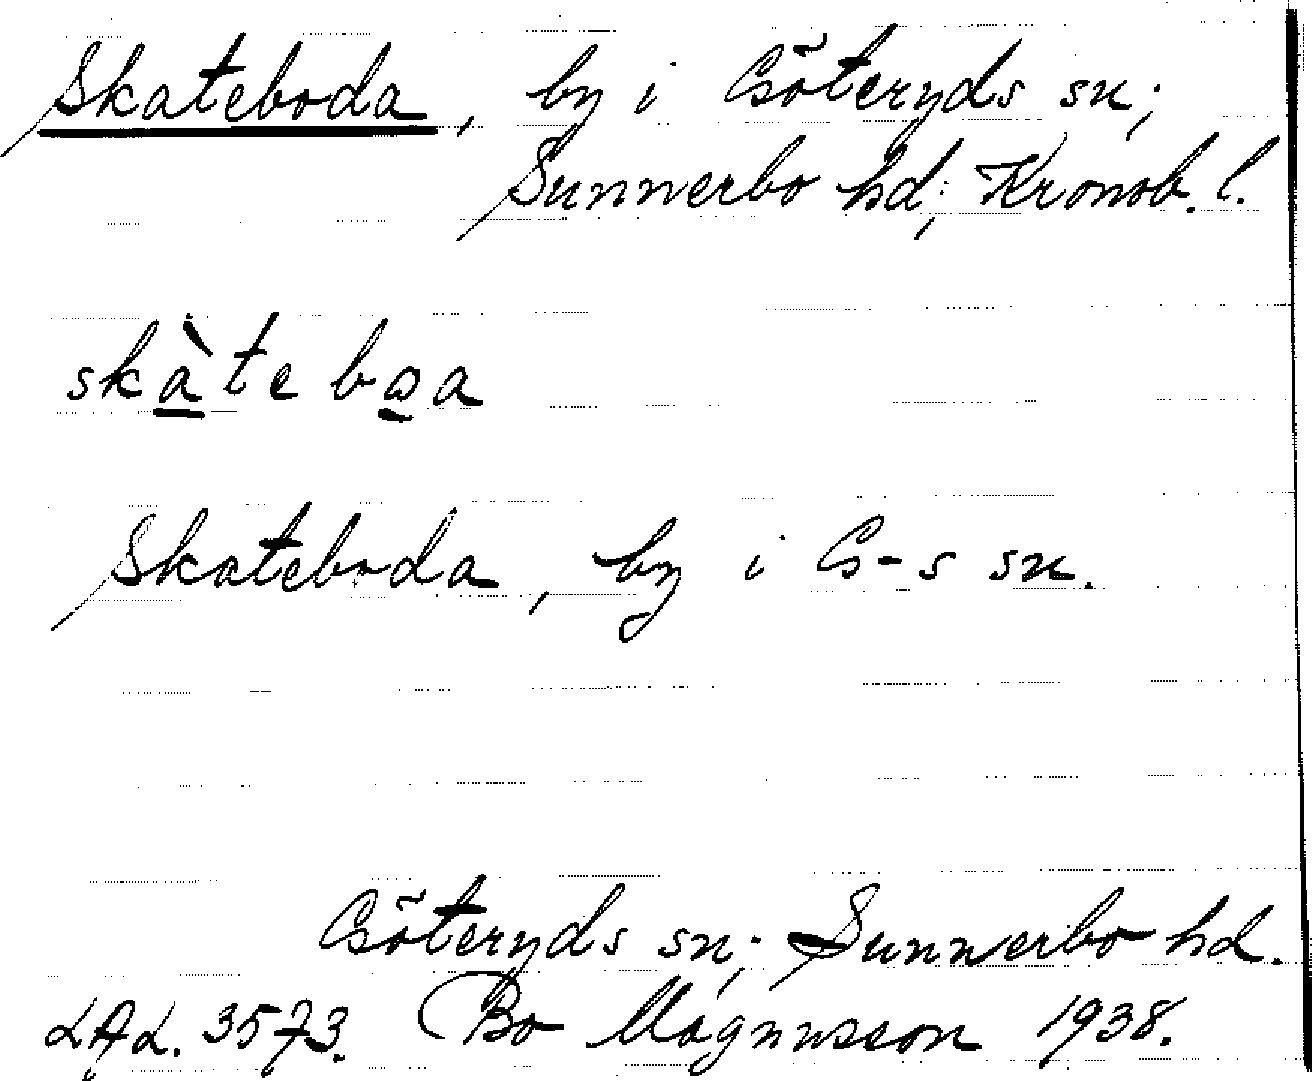 Skateboda, by i Göteryds sn;
Sunnerbo hd; Kronob. l.
skàte boa
Skateboda, by i G-s sn.
Göteryds sn; Sunnerbo hd.
LAL. 3573. Bo Magnusson 1938.